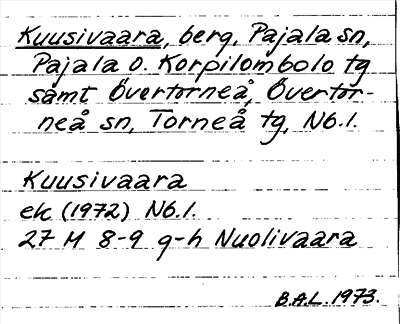 Kuusivaara, berg, Pajala sn,
Pajala o. Korpilombolo tg
samt Övertorneå, Övertor-
neå sn, Torneå tg, Nb.l.
Kuusivaara
ek (1972) Nb.l.
27 M 8-9 g-h Nuolivaara
B.A.L. 1973.